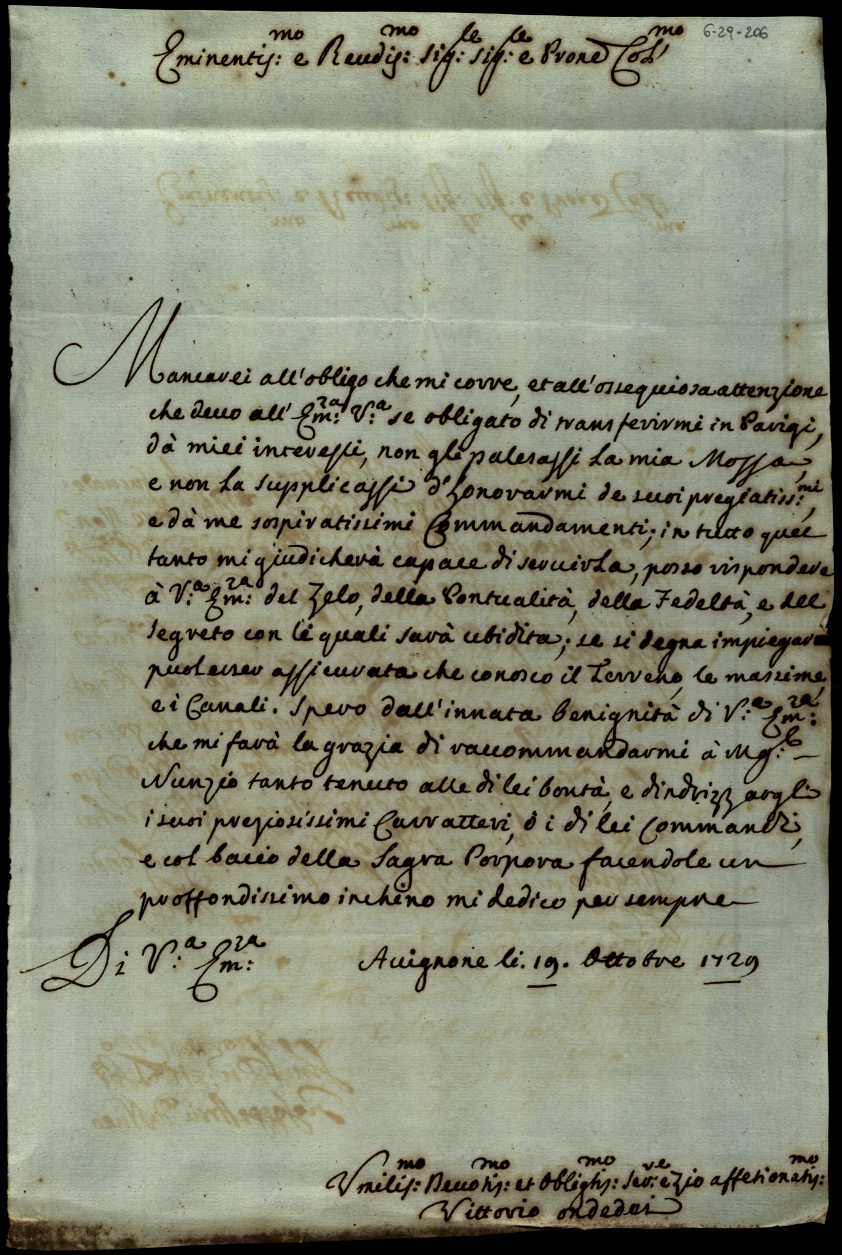 6-29-206
Eminentis:mo e Reudis:mo Sig:le Sig:le e Prone Col:mo
Mancarei all'obligo che mi corre, et all'ossequiosa attenzione
che deuo all' Em:za V:a se obligato di transferirmi in Parigi,
dà miei interessi, non gli palesassi la mia Mossa,
e non la supplicassi d'honorarmi de suoi pregiatiss:mi,
e dà me sospiratissimi Commandamenti; in tutto quel
tanto mi giudicherà capace di seruirla, posso rispondere
à V:a Em:za del Zelo, della Pontualità, della Fedeltà, e del
segreto con le quali sarà ubidita; se si degna impiegarmi
puol'esser assicurata che conosco il Terreno, le massime,
e i Canali. Spero dall'innata benignità di V:a Em:za
che mi farà la grazia di raccommandarmi à Mg:r
Nunzio tanto tenuto alle di lei bontà, e d'indrizzargli
i suoi preziosissimi Carratteri, ò i di lei Commandi,
e col baccio della Sagra Porpora facendole un
proffondissimo inchino mi dedico per sempre
Di V:a Em:za Auignone li. 19. Ottobre 1729
Vmilis:mo Deuotis:mo et Obligtis:mo Ser:re ezio affetionatis:mo
Vittorio ondedei